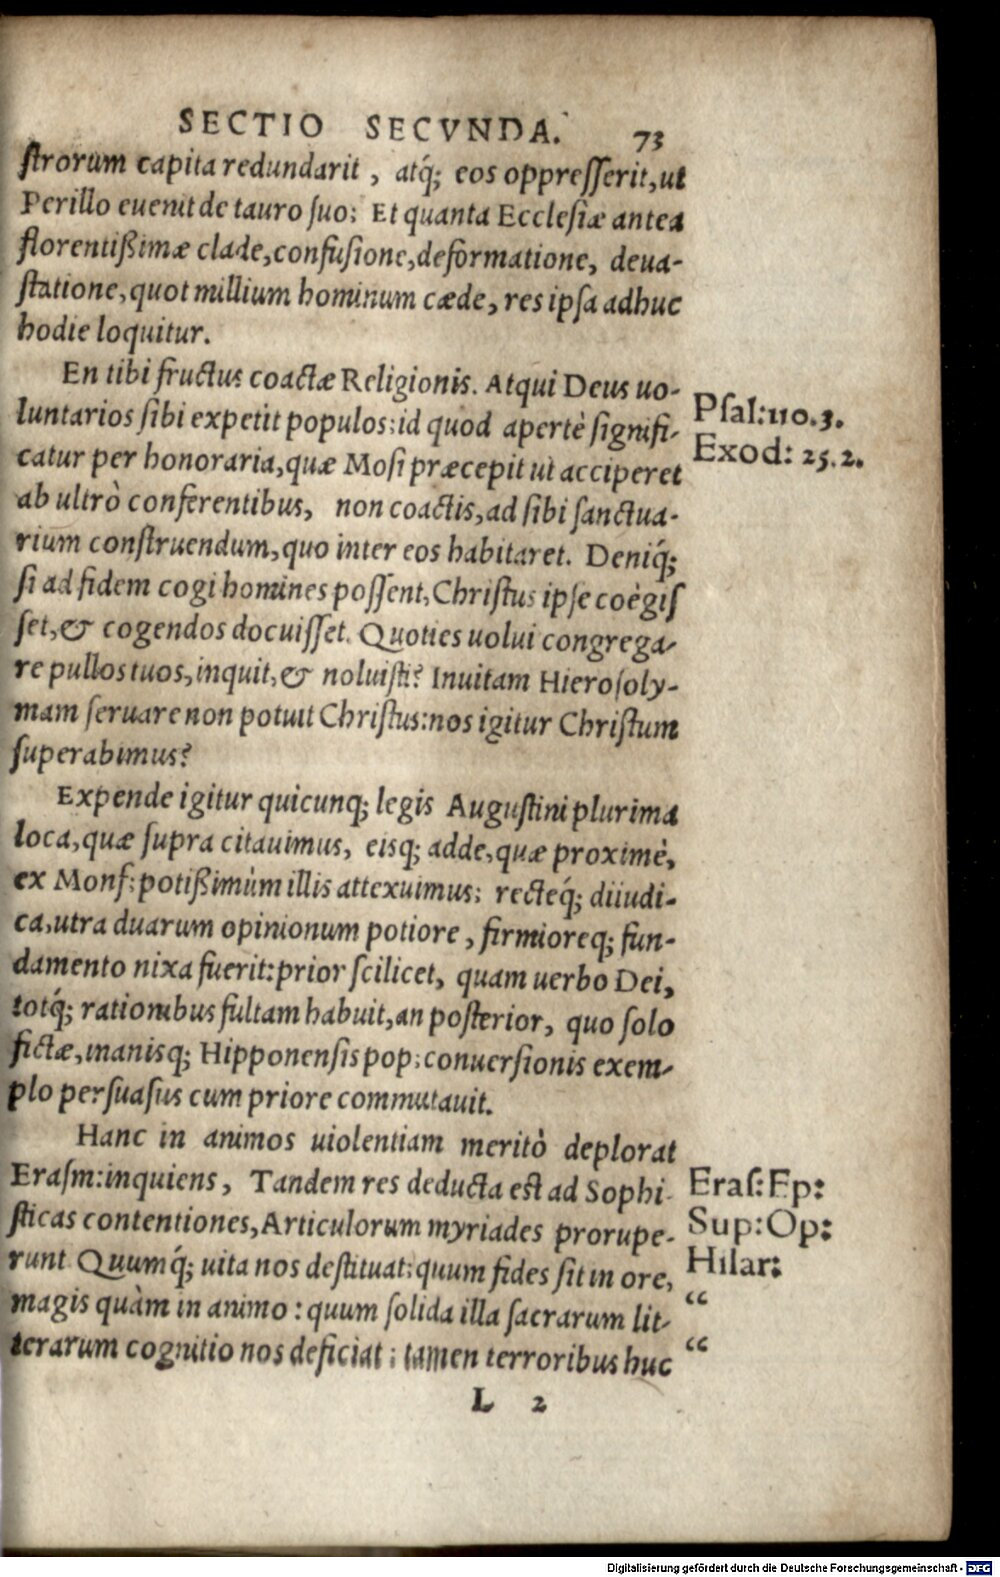 SECTIO SECVNDA. 73
ſtrorum capita redundarit, atq́; eos oppreſſerit, ut
Perillo euenit de tauro ſuo; Et quanta Eccleſiæ antea
florentißimæ clade, confuſione, deformatione, deua-
ſtatione, quot millium hominum cæde, res ipſa adhuc
hodie loquitur.
En tibi fructus coactæ Religionis. Atqui Deus uo-
luntarios ſibi expetit populos: id quod apertè ſignifi-
catur per honoraria, quæ Moſi præcepit ut acciperet
ab ultrò conferentibus, non coactis, ad ſibi ſanctua-
rium conſtruendum, quo inter eos habitaret. Deniq́;
ſi ad fidem cogi homines poſſent, Chriſtus ipſe coègiſ
ſet, & cogendos docuiſſet. Quoties uolui congrega-
re pullos tuos, inquit, & noluiſti? Inuitam Hieroſoly-
mam ſeruare non potuit Chriſtus: nos igitur Chriſtum
ſuperabimus?
Psal: 110. 3.
Exod: 25. 2.
Expende igitur quicunq; legis Auguſtini plurima
loca, quæ ſupra citauimus, eisq; adde, quæ proximè,
ex Monſ: potißimùm illis attexuimus; recteq́; diiudi-
ca, utra duarum opinionum potiore, firmioreq; fun-
damento nixa fuerit: prior ſcilicet, quam uerbo Dei,
totq́; rationibus fultam habuit, an poſterior, quo ſolo
fictæ, inanisq; Hipponenſis pop: conuerſionis exem-
plo perſuaſus cum priore commutauit.
Hanc in animos uiolentiam meritò deplorat
Eraſm: inquiens, Tandem res deducta eſt ad Sophi-
ſticas contentiones, Articulorum myriades prorupe-
runt. Quumq́; uita nos deſtituat: quum fides ſit in ore,
magis quàm in animo: quum ſolida illa ſacrarum lit-
terarum cognitio nos deficiat: tamen terroribus huc
Eraſ: Ep:
Sup: Op:
Hilar:
“
“
L 2
Digitalisierung gefördert durch die Deutsche Forschungsgemeinschaft - DFG